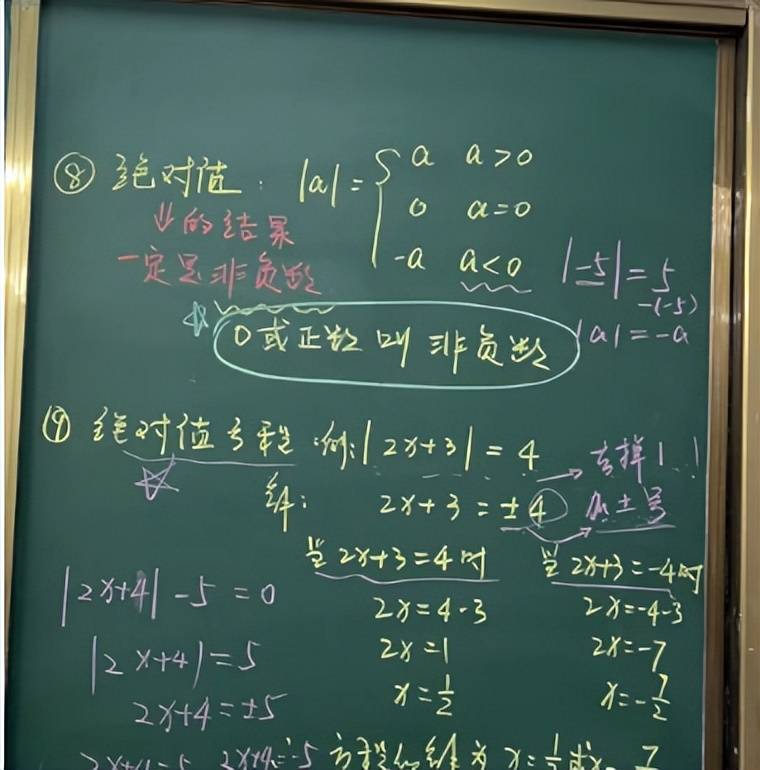 ⑧ 绝对值: |a| = { a a>0
0 a=0
-a a<0
↓的结果
一定是非负数
|-5|=5
-(-5)
|a|=-a
0或正数叫非负数
⑨ 绝对值方程 例:|2x+3|=4
→去掉| |
解: 2x+3=±4 加±号
当2x+3=4时
2x=4-3
2x=1
x=1/2
当2x+3=-4时
2x=-4-3
2x=-7
x=-7/2
|2x+4|-5=0
|2x+4|=5
2x+4=±5
2x+4=5 2x+4=-5
方程的解为 x=1/2或x=-7